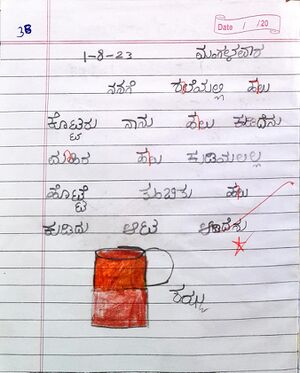 38
Date / /20
1-8-23 ಮಂಗಳವಾರ
ನನಗೆ ಶಾಲೆಯಲ್ಲಿ ಹಾಲು
ಕೊಟ್ಟರು ನಾನು ಹಾಲು ಕುಡಿದೆನು
ಹಾಲು ಕುಡಿಯಲಿಲ್ಲ
ಹೊಟ್ಟೆ ತುಂಬಿತು ಹಾಲು
ಕುಡಿದು ಆಟ ಆಡಿದೆನು